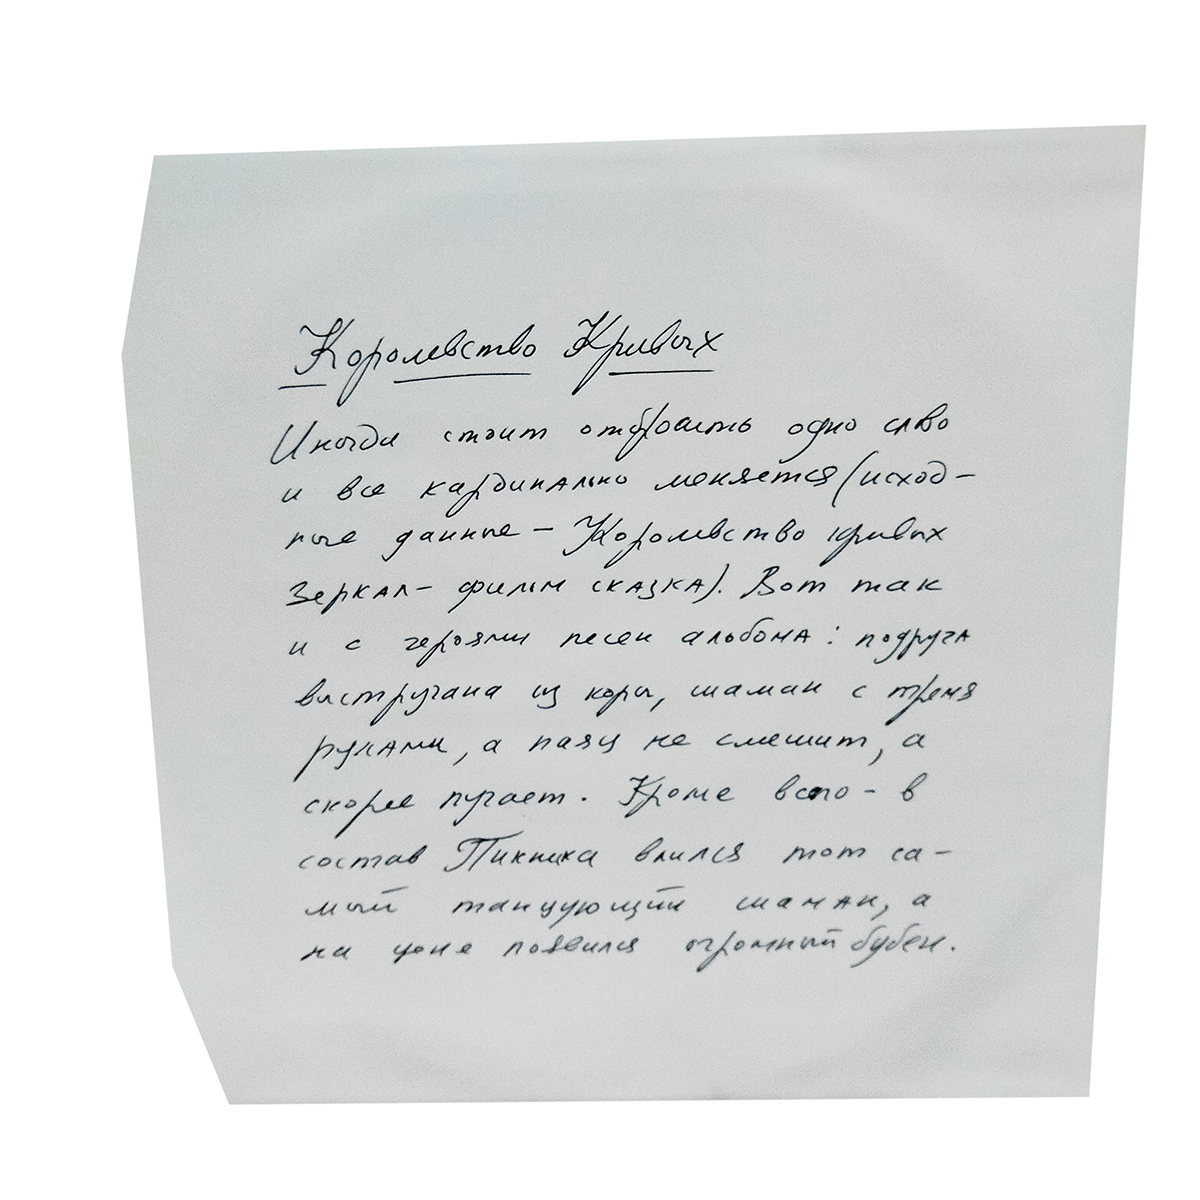 Королевство Кривых
Иногда стоит отбросить одно слово
и все кардинально меняется (исход-
ные данные — Королевство кривых
зеркал — фильм сказка). Вот так
и с героями песен альбома: подруга
выстругана из коры, шаман с тремя
руками, а паяц не смешит, а
скорее пугает. Кроме всего - в
состав Пикника влился тот са-
мый танцующий шаман, а
на цепе появился огромный бубен.